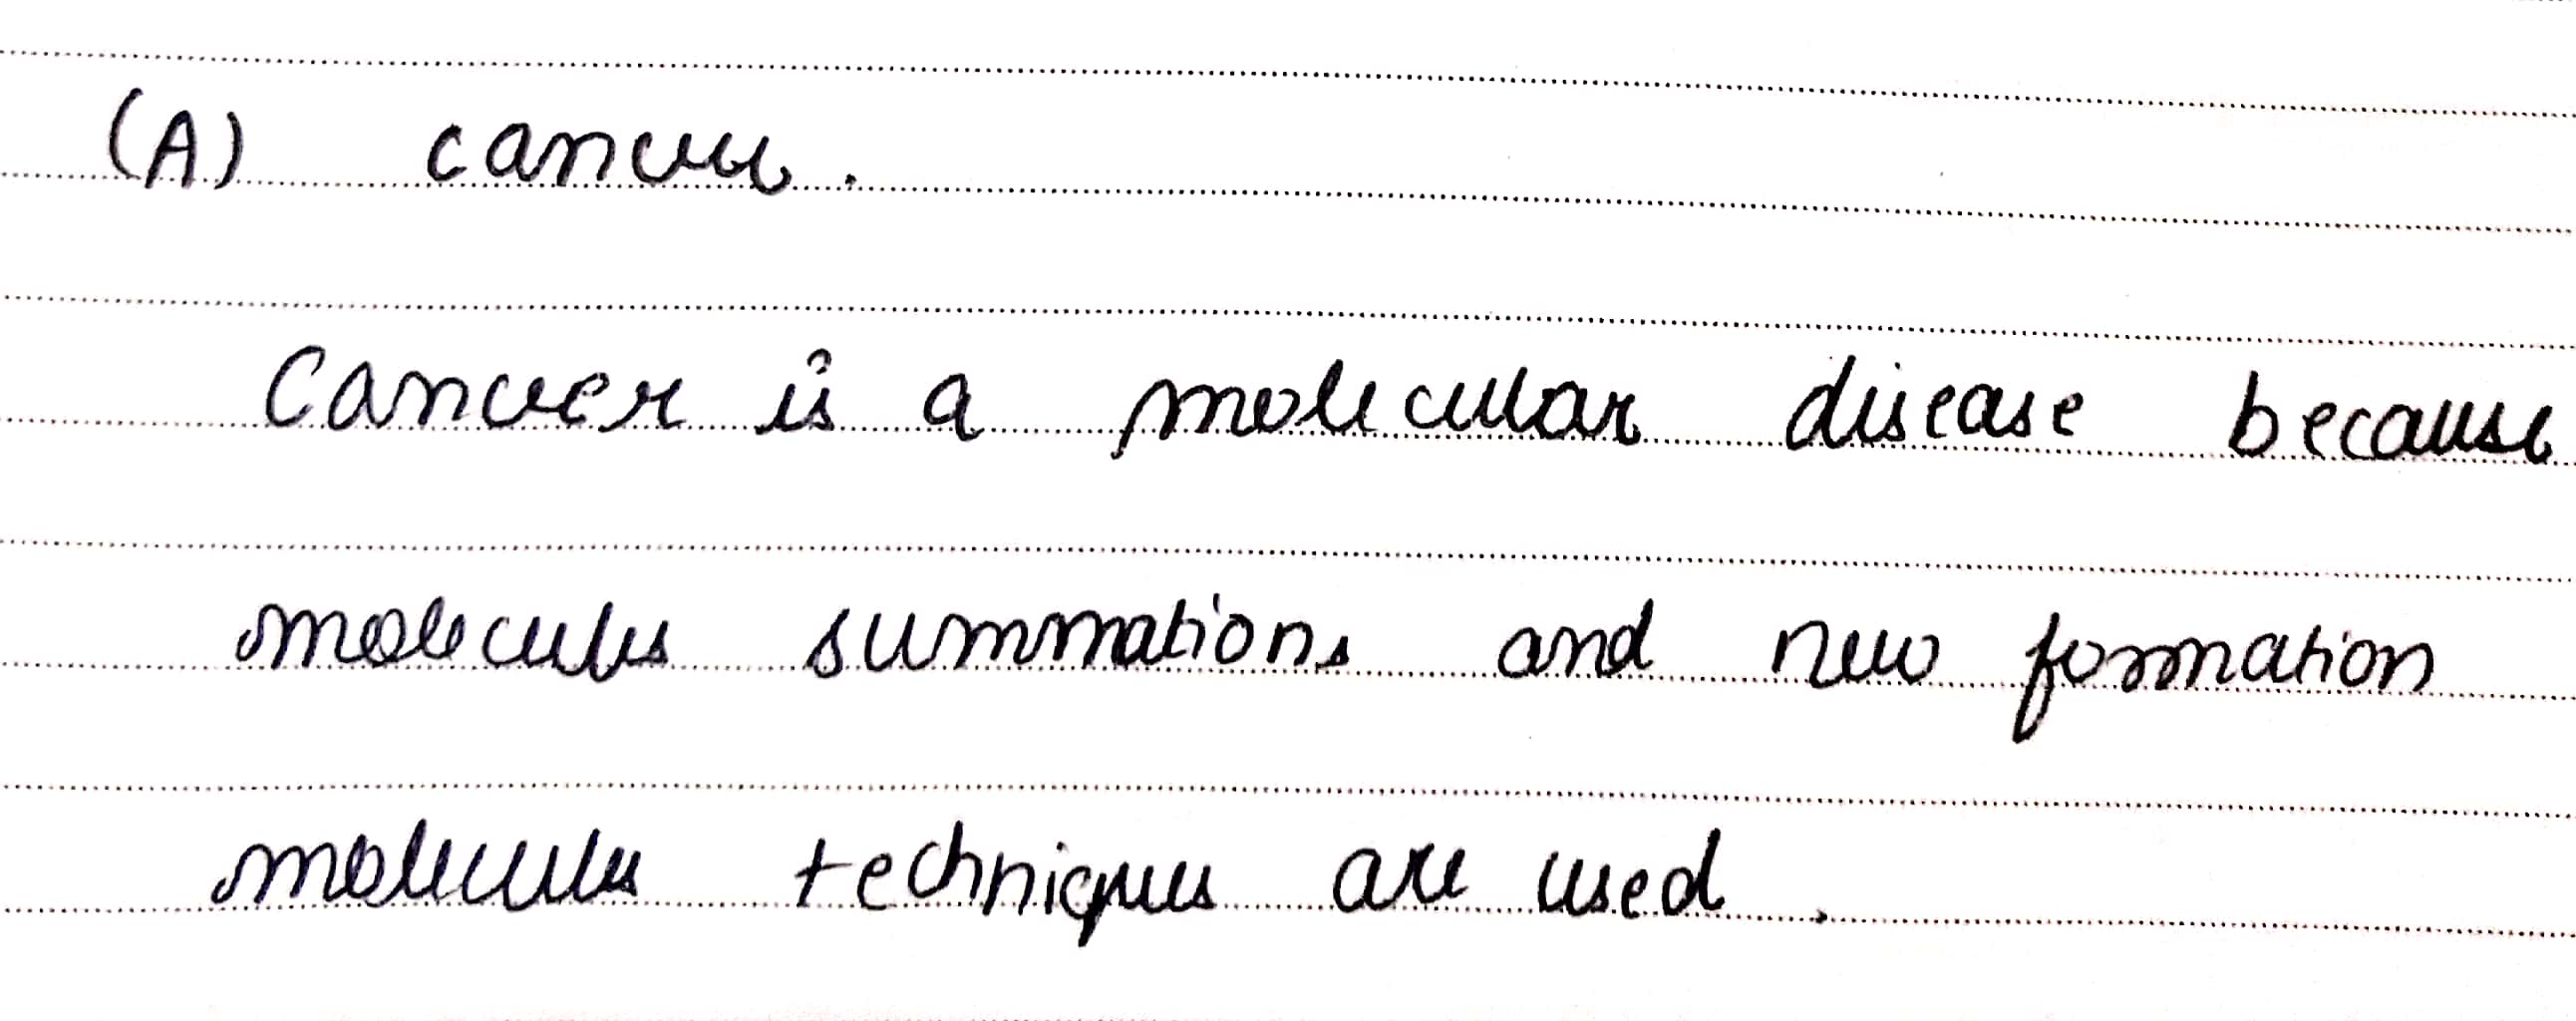 (A) cancer.
Cancer is a molecular disease because
molecules summations and new formation
molecules techniques are used.